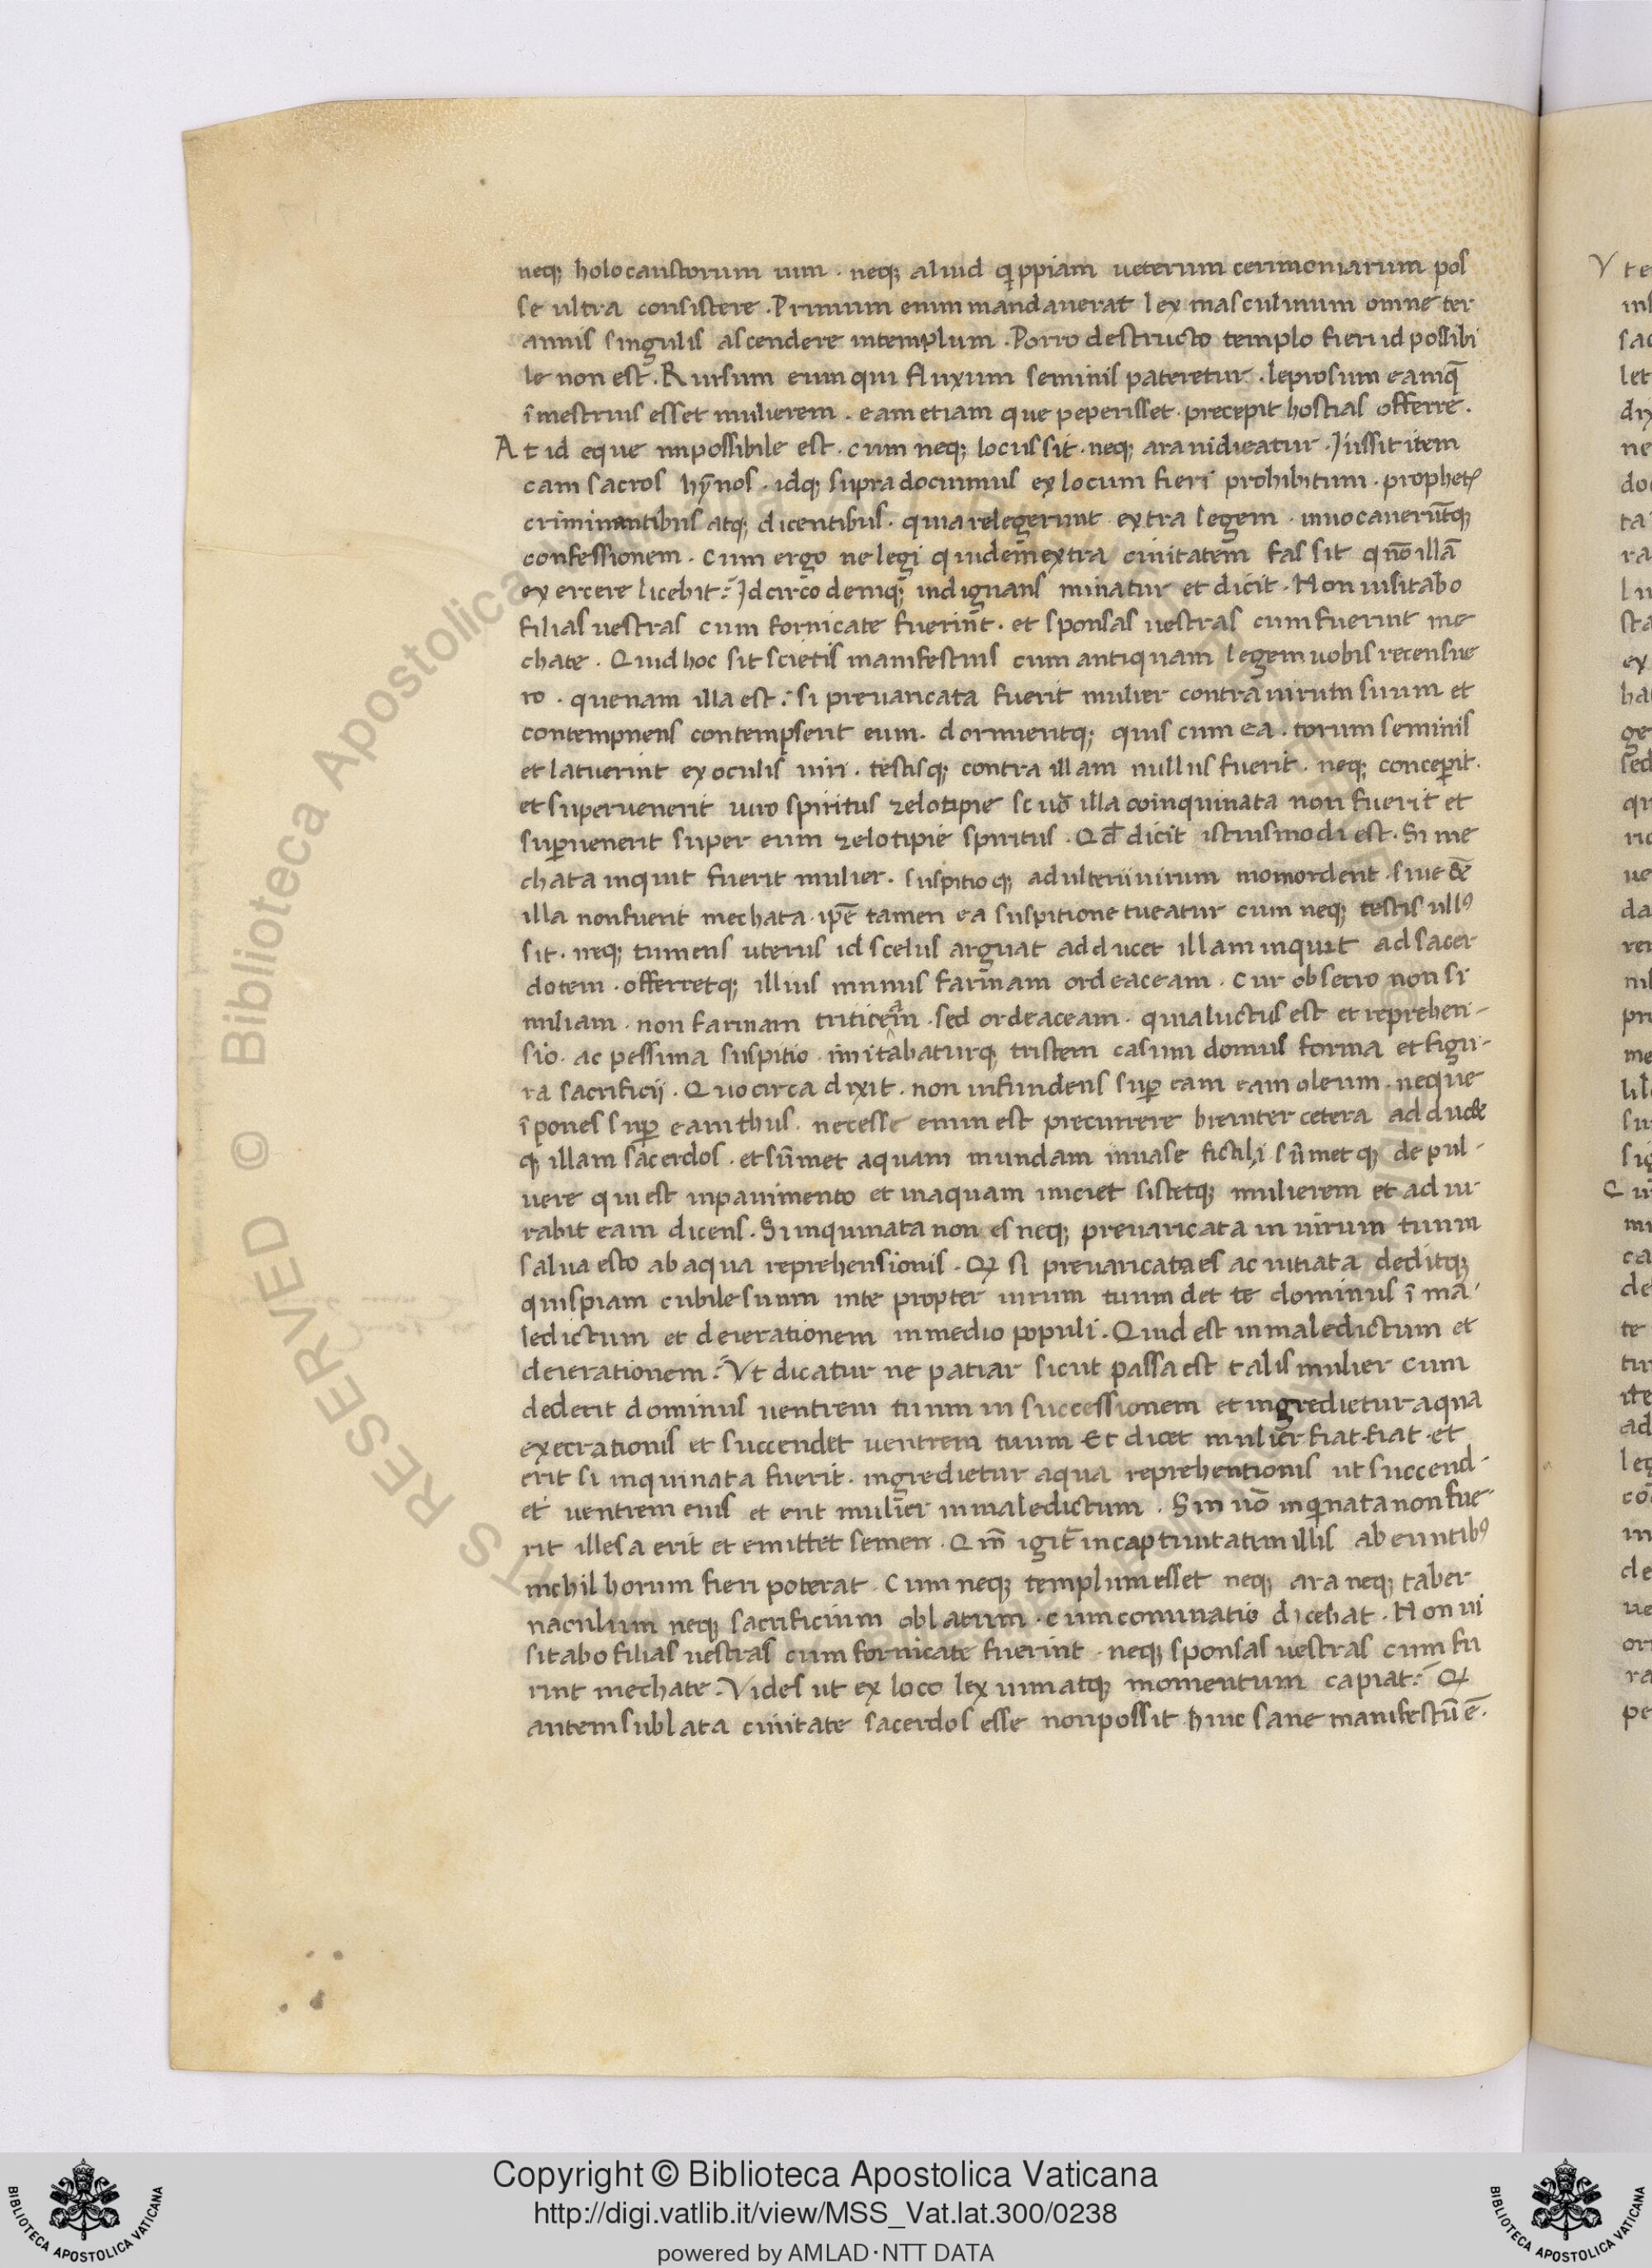 neq; holocaustorum uim · neq; aliud qippiam ueterum cerimoniarum pos
se ultra consistere · Primum enim mandauerat lex masculinum omne ter
annis singulis ascendere intemplum · Porro destructo templo fieri id possibi
le non est · Rursum eum qui fluxum seminis pateretur · leprosum eamq̄
ī mestruis esset mulierem · eam etiam que peperisset · precepit hostias offerre ·
At id eque impossibile est · cum neq; locus sit · neq; ara uidieatur · Jussit item
cam sacros hȳnos · idq; supra docuimus ex locum fieri prohibitum · prophet
criminantibus atq; dicentibus · quia relegerunt extra legem · inuocauerūtq;
confessionem · Cum ergo ne legi quidem extra ciuitatem fas sit qnō illā
exercere licebit? Jdcirco deniq; indignans minatur et dicit · Non uisitabo
filias uestras cum fornicate fuerint · et sponsas uestras cum fuerint me
chate · Quid hoc sit scietis manifestius cum antiquam legem uobis recensue
ro · quenam illa est? si preuaricata fuerit mulier contra uirum suum et
contempnens contempserit eum · dormieritq; quis cum ea · torum seminis
et latuerint ex oculis uiri · testisq; contra illam nullus fuerit · neq; conceperit ·
et superuenerit uiro spiritus zelotipie seu uō illa coinquinata non fuerit et
supuenerit super eum zelotipie spiritus · Qđ dicit istiusmodi est · Si me
chata inquit fuerit mulier · suspitioq; adulterii uirum momorderit · siue
illa nonfuerit mechata · ipē tamen ea suspitione tueatur cum neq; testis ullꝰ
sit · neq; tumens uterus id scelus arguat adducet illam inquit ad sacer
dotem · offerretq; illius munus farinam ordeaceam · Cur obsecro non si
miliam · non farinam triticeam · sed ordeaceam · quia luctus est et reprehen-
sio · ac pessima suspitio · imitabaturq; tristem casum domus forma et figu-
ra sacrificij · Quocirca dixit · non infundens sup eam eam oleum · neque
ī pones sup eam thus · necesse enim est precurrere breuiter cetera adduc&
q; illam sacerdos · et sūmet aquam mundam inuase fictili sūmetq; de pul-
uere qui est inpauimento et inaquam iniciet sistetq; mulierem et adiu-
rabit eam dicens · Si inquinata non es neq; preuaricata in uirum tuum
salua esto ab aqua reprehensionis · Q si preuaricata es ac uitiata deditq;
quispiam cubile suum inte propter uirum tuum det te dominus ī ma-
ledictum et deierationem inmedio populi · Quid est inmaledictum et
deierationem? Vt dicatur ne patiar sicut passa est talis mulier cum
dederit dominus uentrem tuum in successionem et ingredietur aqua
execrationis et succendet uentrem tuum Et dicet mulier fiat · fiat · et
erit si inquinata fuerit · ingredietur aqua reprehentionis ut succend-
et uentrem eius et erit mulier inmaledictum · Sin uō inqinata non fue-
rit illesa erit et emittet semen · Qm̄ igit̄ in captiuitatem illis abeuntibꝰ
nichil horum fieri poterat · Cum neq; templum esset neq; ara neq; taber
naculum neq; sacrificium oblatum · cum cominatio dicebat · Non ui
sitabo filias uestras cum fornicate fuerint · neq; sponsas uestras cum fu
rint mechate · Vides ut ex loco lex uimatq; momentum capiat? Q
autem sublata ciuitate sacerdos esse nonpossit hinc sane manifestū ē ·
Copyright © Biblioteca Apostolica Vaticana
http://digi.vatlib.it/view/MSS_Vat.lat.300/0238
powered by AMLAD·NTT DATA
BIBLIOTECA APOSTOLICA VATICANA
BIBLIOTECA APOSTOLICA VATICANA